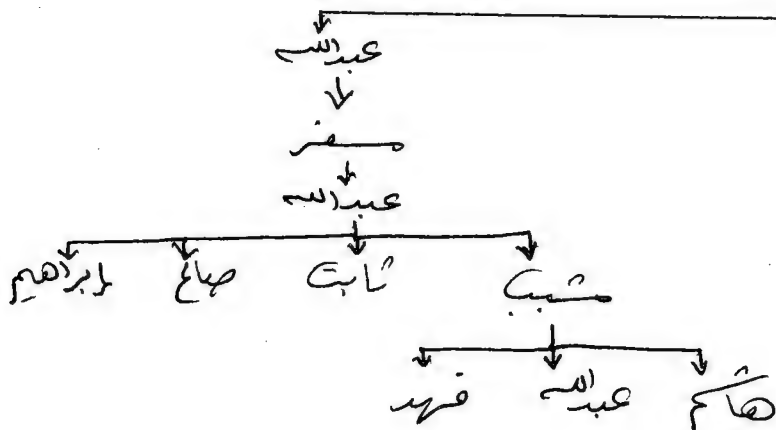 عبدالله
مسفر
عبدالله
مشبب ثابت صالح إبراهيم
هاشم عبدالله فهد